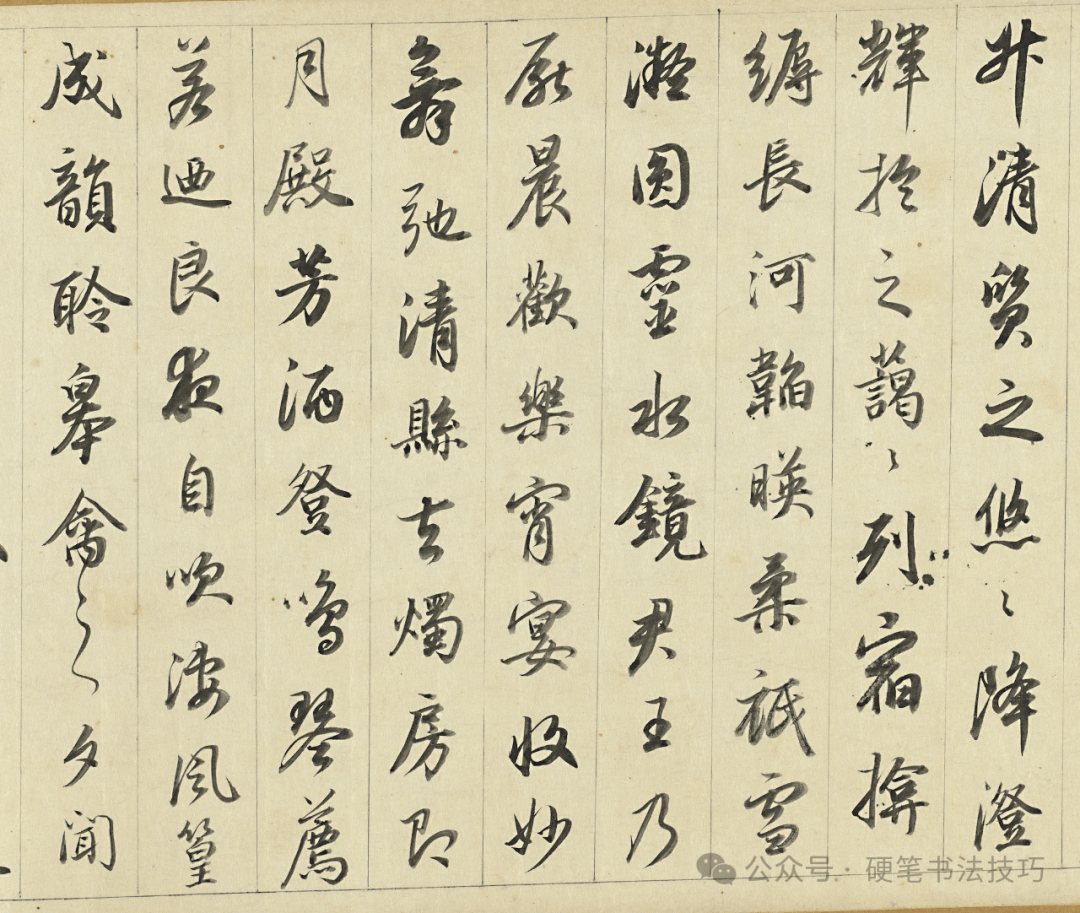 升清質之悠〻降澄
輝於之藹〻列宿掩
縟長河韜暎柔祇雪
凝圓靈水鏡君王乃
厭晨歡樂宵宴收妙
舞弛清縣去燭房即
月殿芳酒登鳴琴薦
若迺良夜自吹淒風篁
成韻聆皋禽〻之夕聞
公众号·硬笔书法技巧